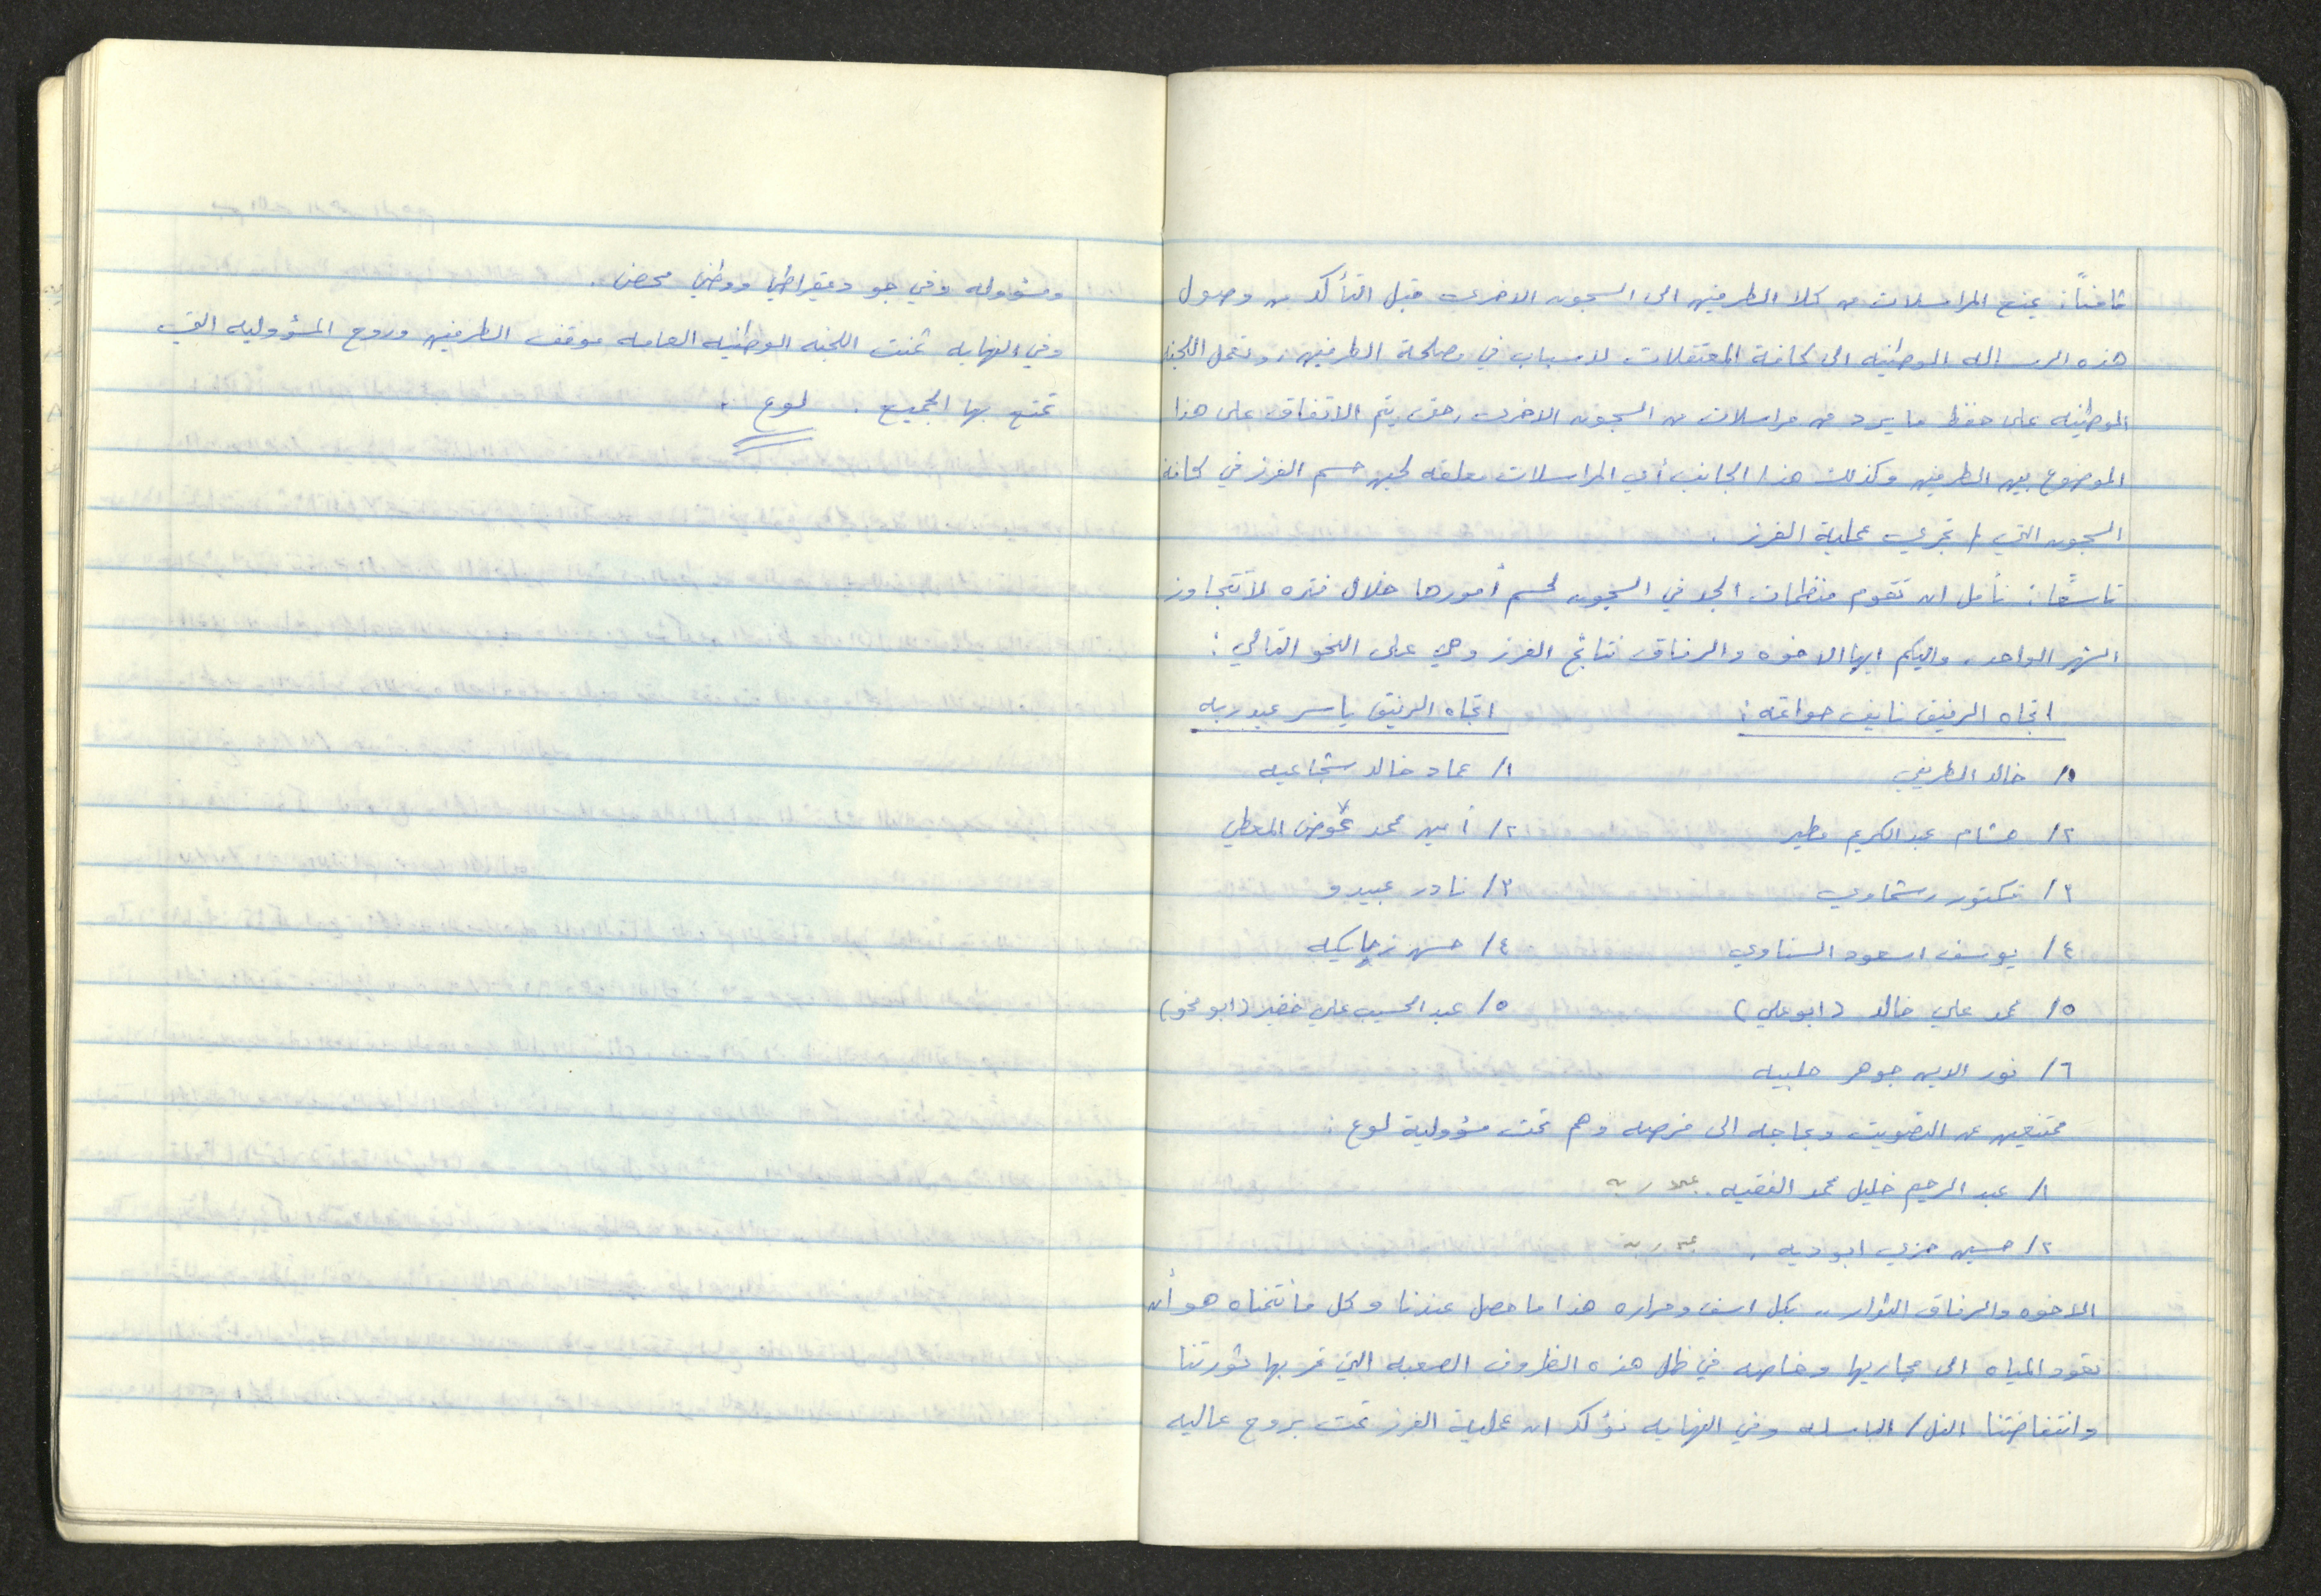 ثامناً: يمنع المراسلات من كلا الطرفين الى السجون الاخرى قبل التأكد من وصول
هذه الرساله الوطنيه الى كافة المعتقلات لاسباب في مصلحة الطرفين، وتعمل اللجنه
الوطنيه على حفظ ما يرد من مراسلات من السجون الاخرى، حتى يتم الاتفاق على هذا
الموضوع بين الطرفين وكذلك هذا الجانب أي المراسلات معلقه لحين حسم الفرز في كافة
السجون التي / تجري عملية الفرز .
تاسعاً: نأمل ان تقوم منظمات الجد في السجون لحسم أمورها خلال فتره لا تتجاوز
الشهر الواحد، واليكم ايها الاخوه والرفاق نتائج الفرز وهي على النحو التالي :
اتجاه الرفيق نايف حواتمه : اتجاه الرفيق ياسر عبد ربه
١/ خالد الطريفي ١/ عماد خالد شجاعيه
٢/ هشام عبد الكريم مطير ٢/ أمين محمد عوض المعطي
٣/ فكتور رشماوي ٣/ نادر عبيدو
٤/ يوسف اسعود السناوي ٤/ حسن زحايكه
٥/ محمد علي خالد (ابو علي) ٥/ عبد الحسيب علي خضير (ابو محو)
٦/ نور الدين جوهر حلبيه
ممتنعين عن التصويت وبحاجه الى فرصه وهم تحت مسؤولية لوع :
١/ عبد الرحيم خليل محمد الفقيه . عبد ربه
٢/ حسين حزي ابو ديه . عبد ربه
الاخوه والرفاق الثوار .. بكل اسف ومراره هذا ما حصل عندنا وكل ما نتمناه هو أن
تعود المياه الى مجاريها وخاصه في ظل هذه الظروف الصعبه التي تمر بها ثورتنا
وانتفاضتنا / الباسله وفي النهايه نؤكد ان عملية الفرز تمت بروح عاليه
ومسؤوله وفي جو ديمقراطي ووطني محض .
وفي النهايه ثمنت اللجنه الوطنيه العامه موقف الطرفين وروح المسؤوليه التي
تمتع بها الجميع . لوع .